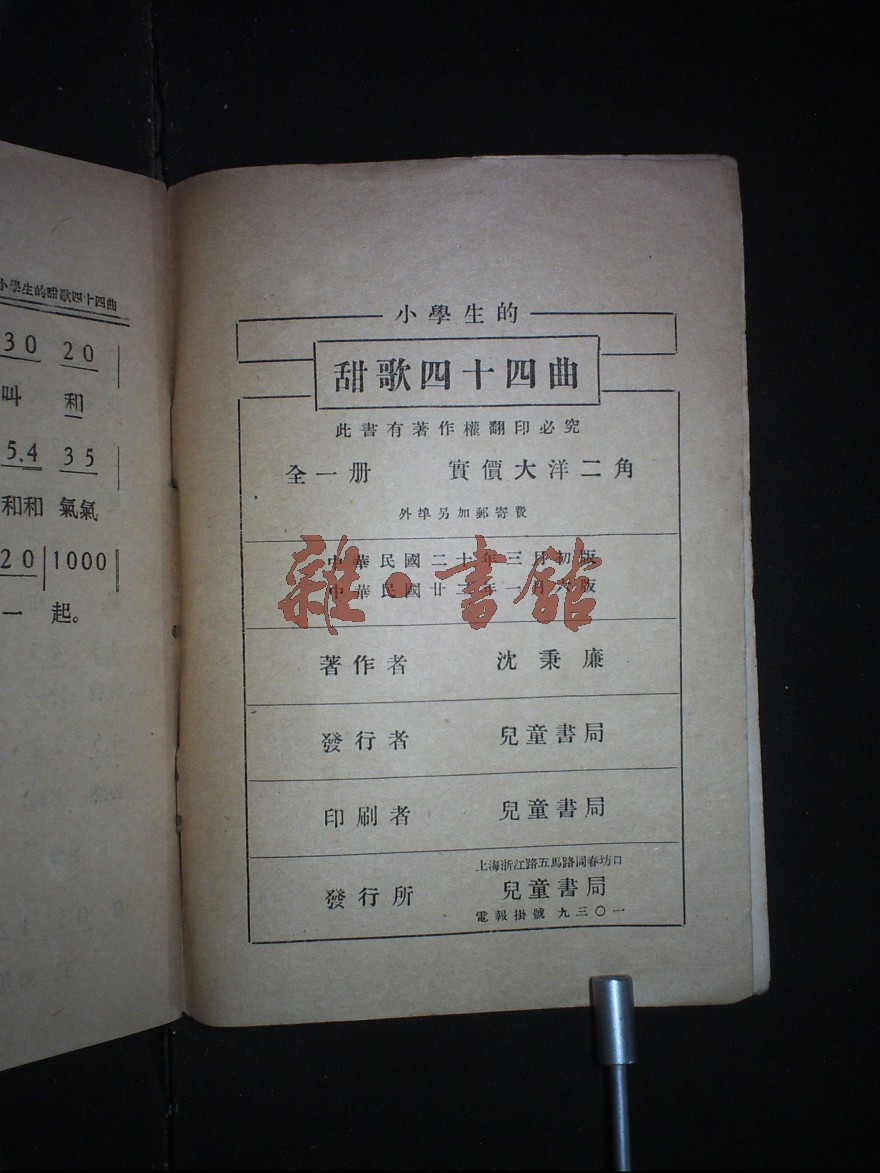 小學生的甜歌四十四曲
30 20
叫 和
5.4 35
和和 氣氣
20 1000
一 起。
小學生的
甜歌四十四曲
此書有著作權翻印必究
全一册 實價大洋二角
外埠另加郵寄費
中華民國二十年三月初版
中華民國廿三年一月六版
雜·書館
著作者 沈秉廉
發行者 兒童書局
印刷者 兒童書局
上海浙江路五馬路同春坊口
發行所 兒童書局
電報掛號 九三〇一